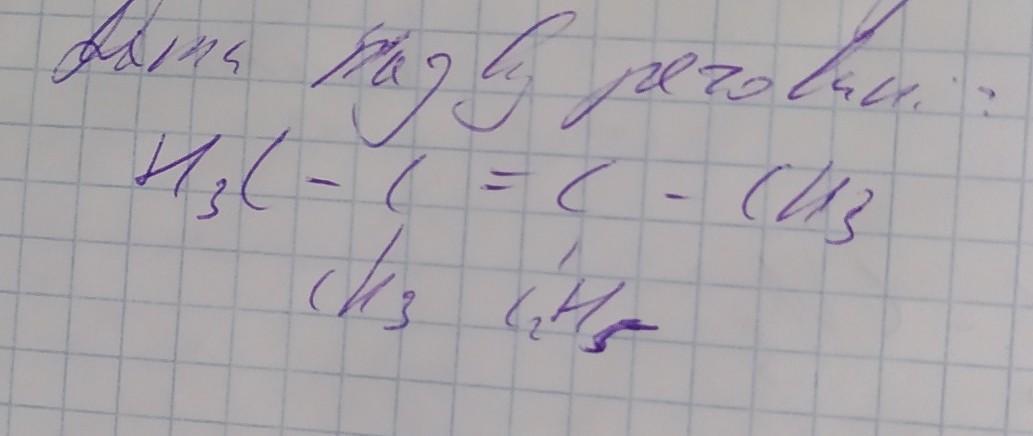 Дати назву речовині:
H₃C - C = C - CH₃
CH₃ C₂H₅